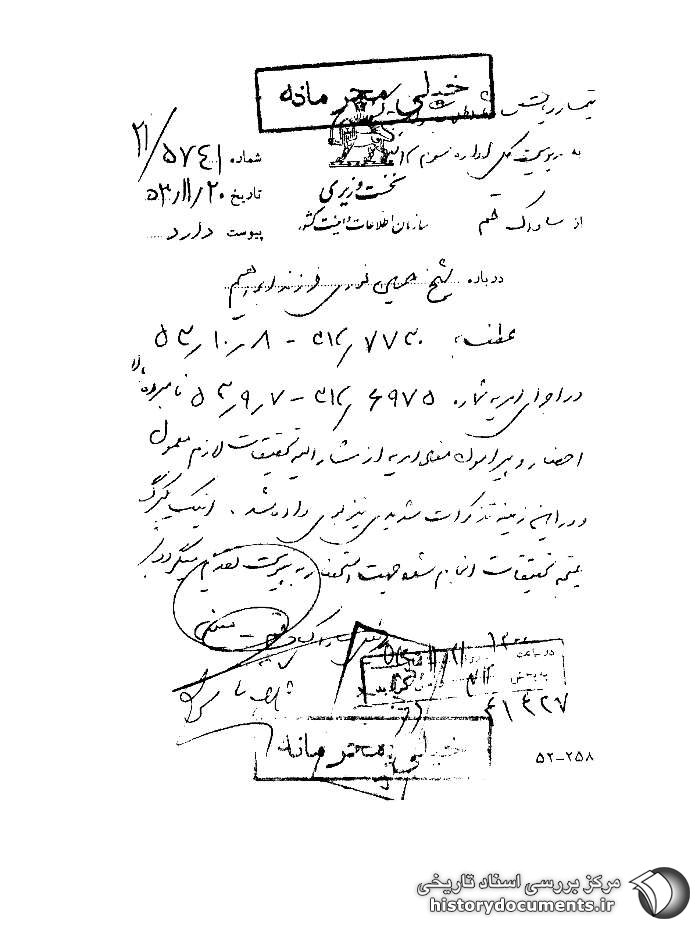 خیلی محرمانه
تیمسار ریاست
به مدیریت کل اداره سوم
شماره ۵۷۴۱/۲۱
نخست وزیری
تاریخ ۵۳/۱۱/۲۰
از ساواک قم
سازمان اطلاعات و امنیت کشور
پیوست دارد
درباره شیخ حسین نوری فرزند ابراهیم
عطف به ۳۱۲/۷۷۳۰ - ۵۳/۱۰/۸
در اجرای امریه شماره ۳۱۲/۶۹۷۵ - ۵۳/۹/۷ نامبرده بالا
احضار و پیرامون مفاد امریه از مشارالیه تحقیقات لازم معمول
و در این زمینه تذکرات شدیدی نیز بوی داده شد. اینک یکبرگ
نتیجه تحقیقات انجام شده جهت استحضار به پیوست تقدیم میگردد.
رئیس ساواک قم
خیلی محرمانه
۵۲-۲۵۸
مرکز بررسی اسناد تاریخی
historydocuments.ir